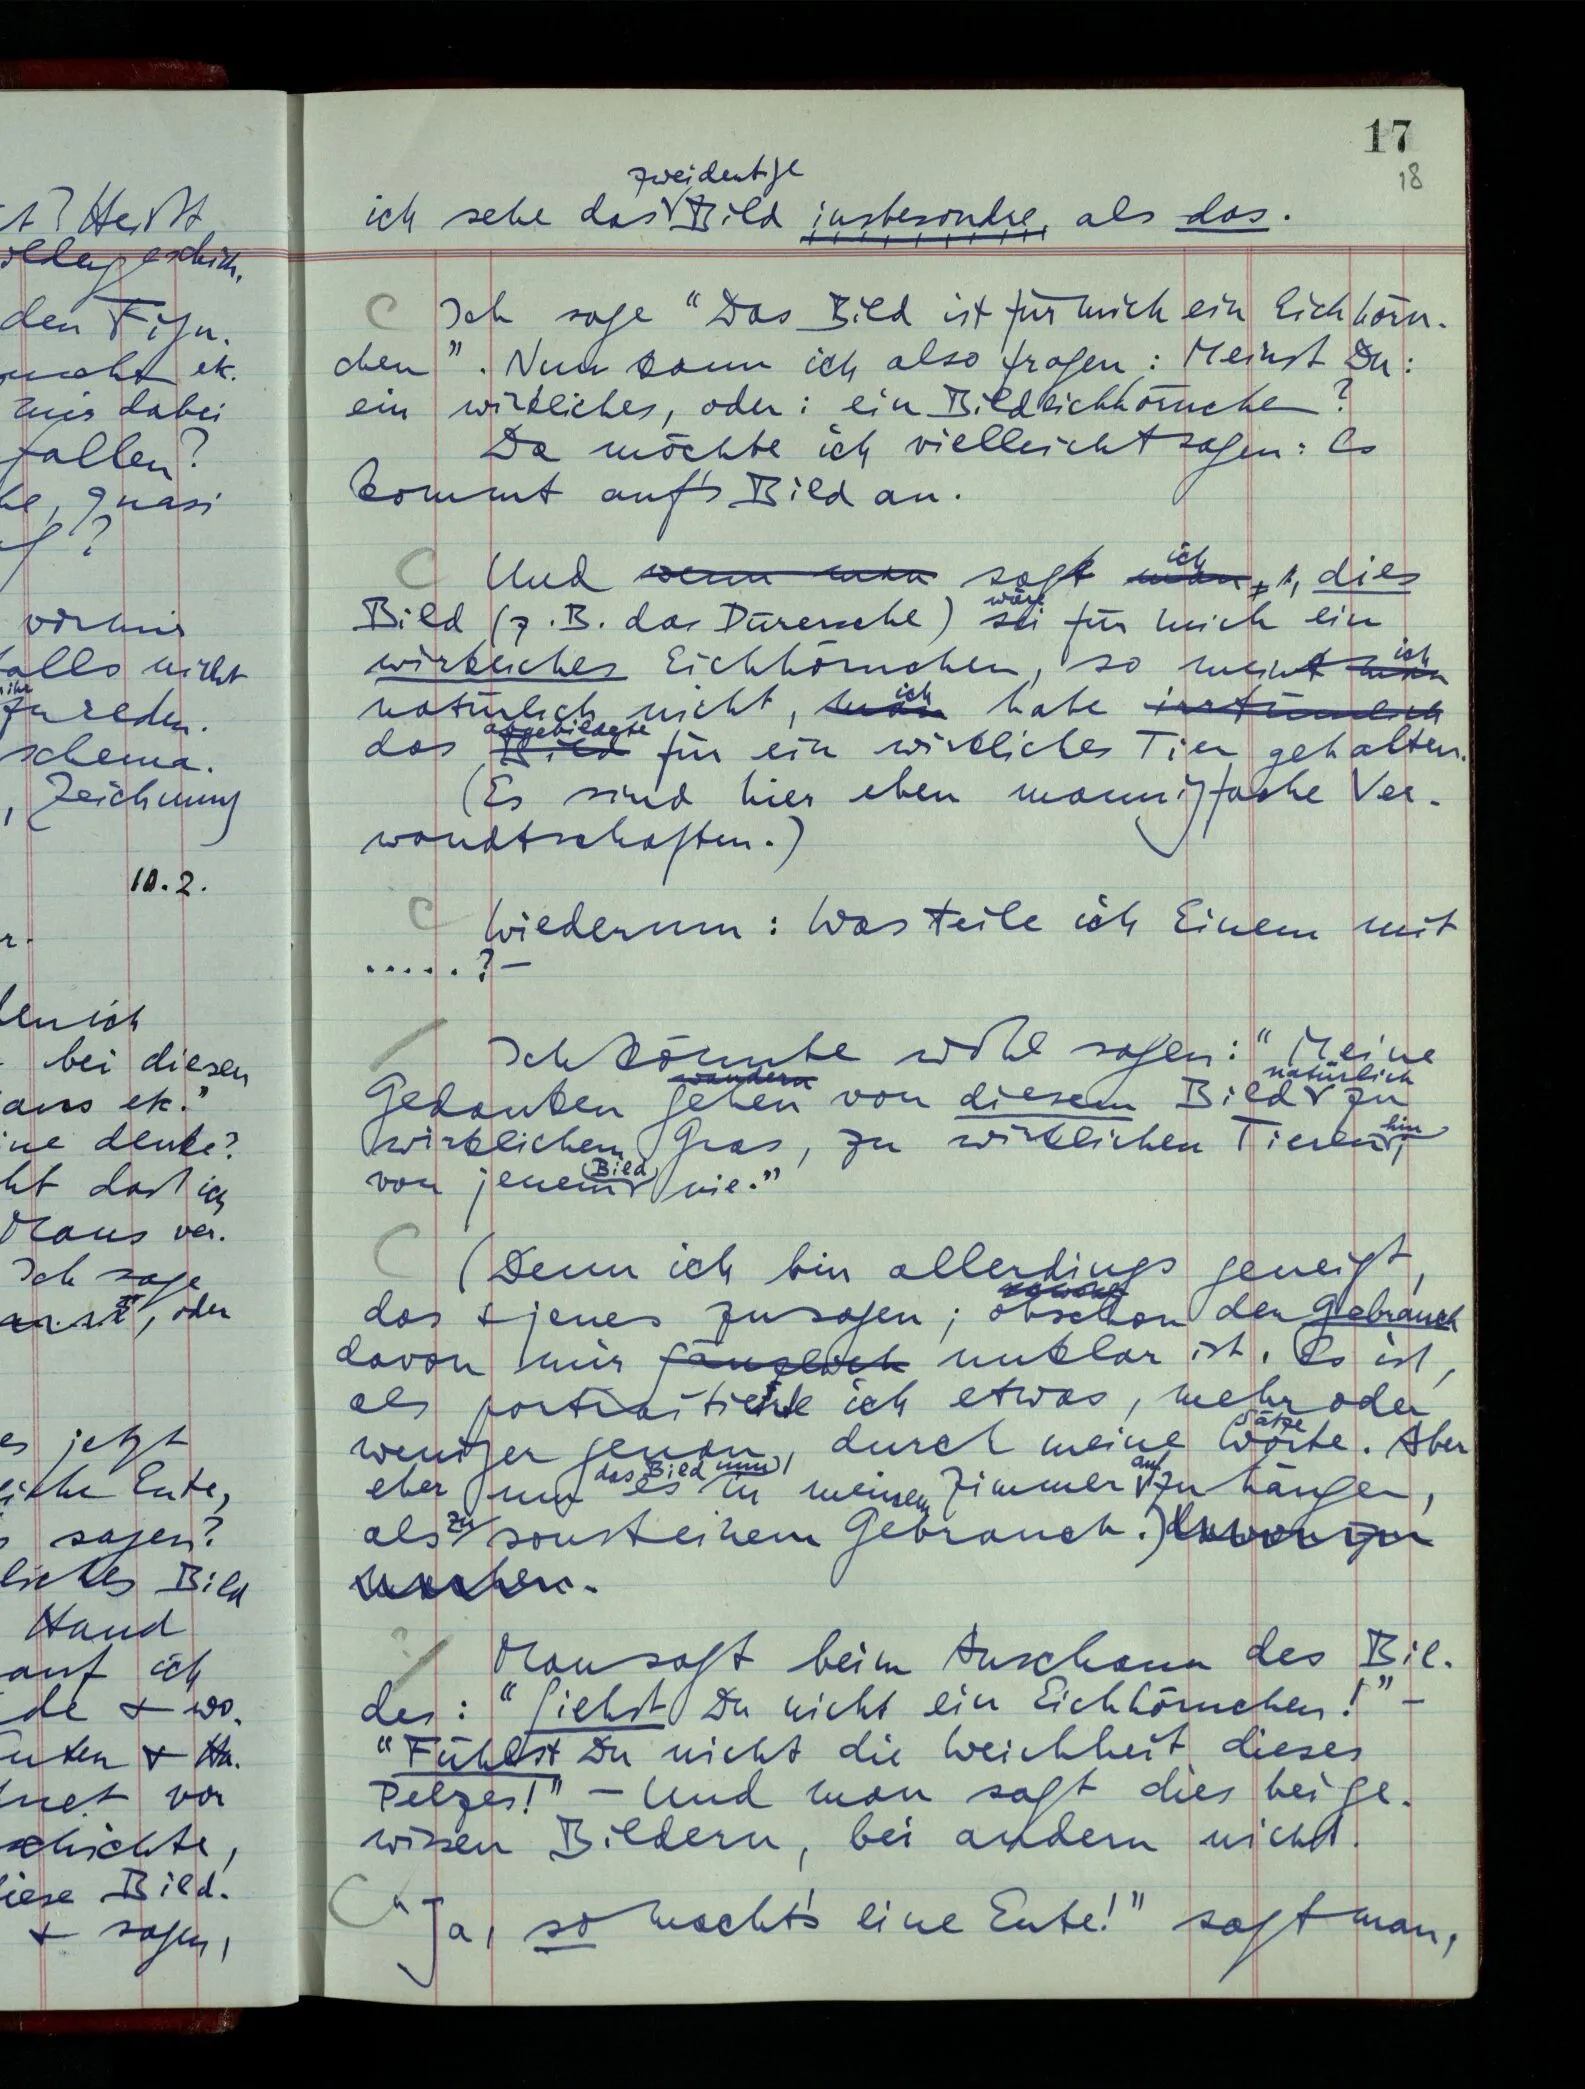 t? Heißt
den Figu-
macht etc.
mir dabei
fallen?
he, quasi
f?
vor mir
falls nicht
ihr
zu reden.
schema.
, Zeichnung
10.2.
r.
den ich
bei diesen
aus etc."
ine denke?
ht daß ich
Maus ver-
Ich sage
, oder
es jetzt
liche Ente,
sagen?
liches Bild
Hand
auf ich
de & wo.
Enten & Ha-
net vor
schichte,
diese Bild.
& sagen,
17
18
zweideutige
ich sehe das Bild insbesondre, als das.
C Ich sage "Das Bild ist für mich ein Eichhörn-
chen". Nun kann ich also fragen: Meinst Du:
ein wirkliches, oder: ein Bildeichhörnchen?
Da möchte ich vielleicht sagen: Es
kommt auf's Bild an.
ich
C Und wenn man sagt man, dies
wäre
Bild (z.B. das Dürersche) sei für mich ein
ich
wirkliches Eichhörnchen, so meint man
ich
natürlich nicht, man habe irrtümlich
abgebildete
das Bild für ein wirkliches Tier gehalten.
(Es sind hier eben mannigfache Ver-
wandtschaften.)
C Wiederum: Was teile ich Einem mit
.....? –
/ Ich könnte wohl sagen: "Meine
wandern natürlich
Gedanken gehen von diesem Bild zu
hin
wirklichem Gras, zu wirklichen Tieren;
(Bild)
von jenem nie."
C (Denn ich bin allerdings geneigt,
das & jenes zu sagen; obschon der Gebrauch
davon mir gänzlich unklar ist. Es ist,
als portraitierte ich etwas, mehr oder
Sätze
weniger genau, durch meine Worte. Aber
das Bild nun auf
eher um es in meinem Zimmer zu hängen,
zu
als sonst einem Gebrauch.) davon zu
machen.
/ Man sagt beim Anschaun des Bil-
des: "Siehst Du nicht ein Eichhörnchen!" –
"Fühlst Du nicht die Weichheit dieses
Pelzes!" – Und man sagt dies bei ge-
wissen Bildern, bei andern nicht.
C "Ja, so macht's eine Ente!" sagt man,